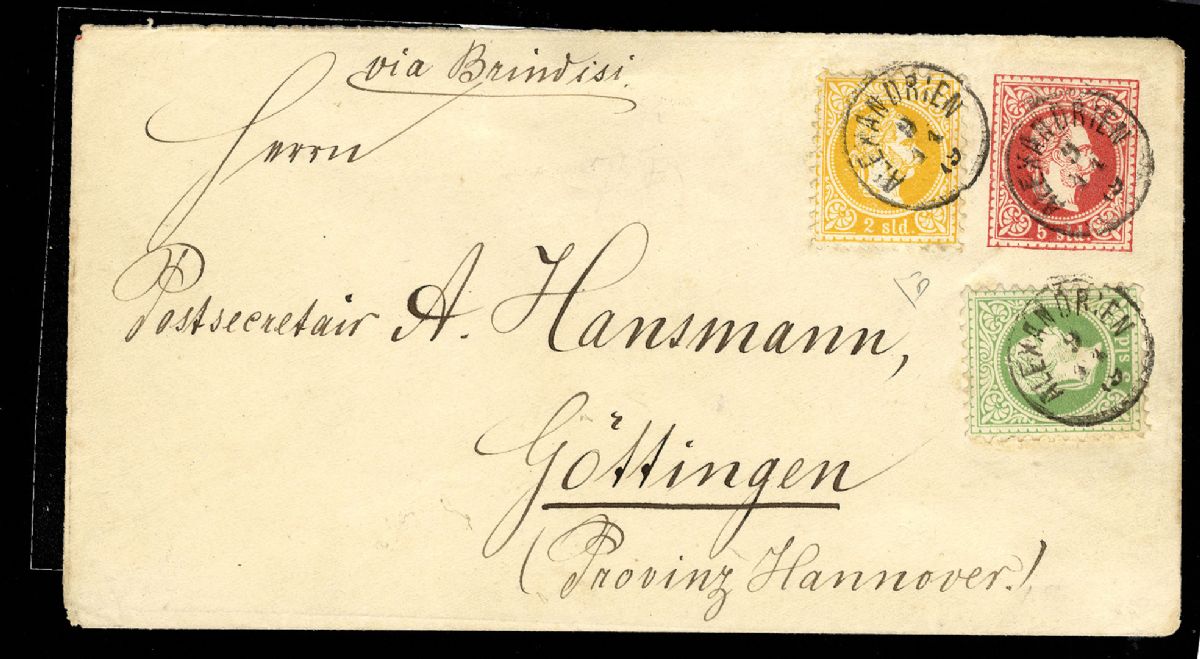 via Brindisi.
Herrn
Postsecretair A. Hansmann,
Göttingen
(Provinz Hannover.)
ALEXANDRIEN
2 sld.
ALEXANDRIEN
5 sld.
ALEXANDRIEN
3 sld.